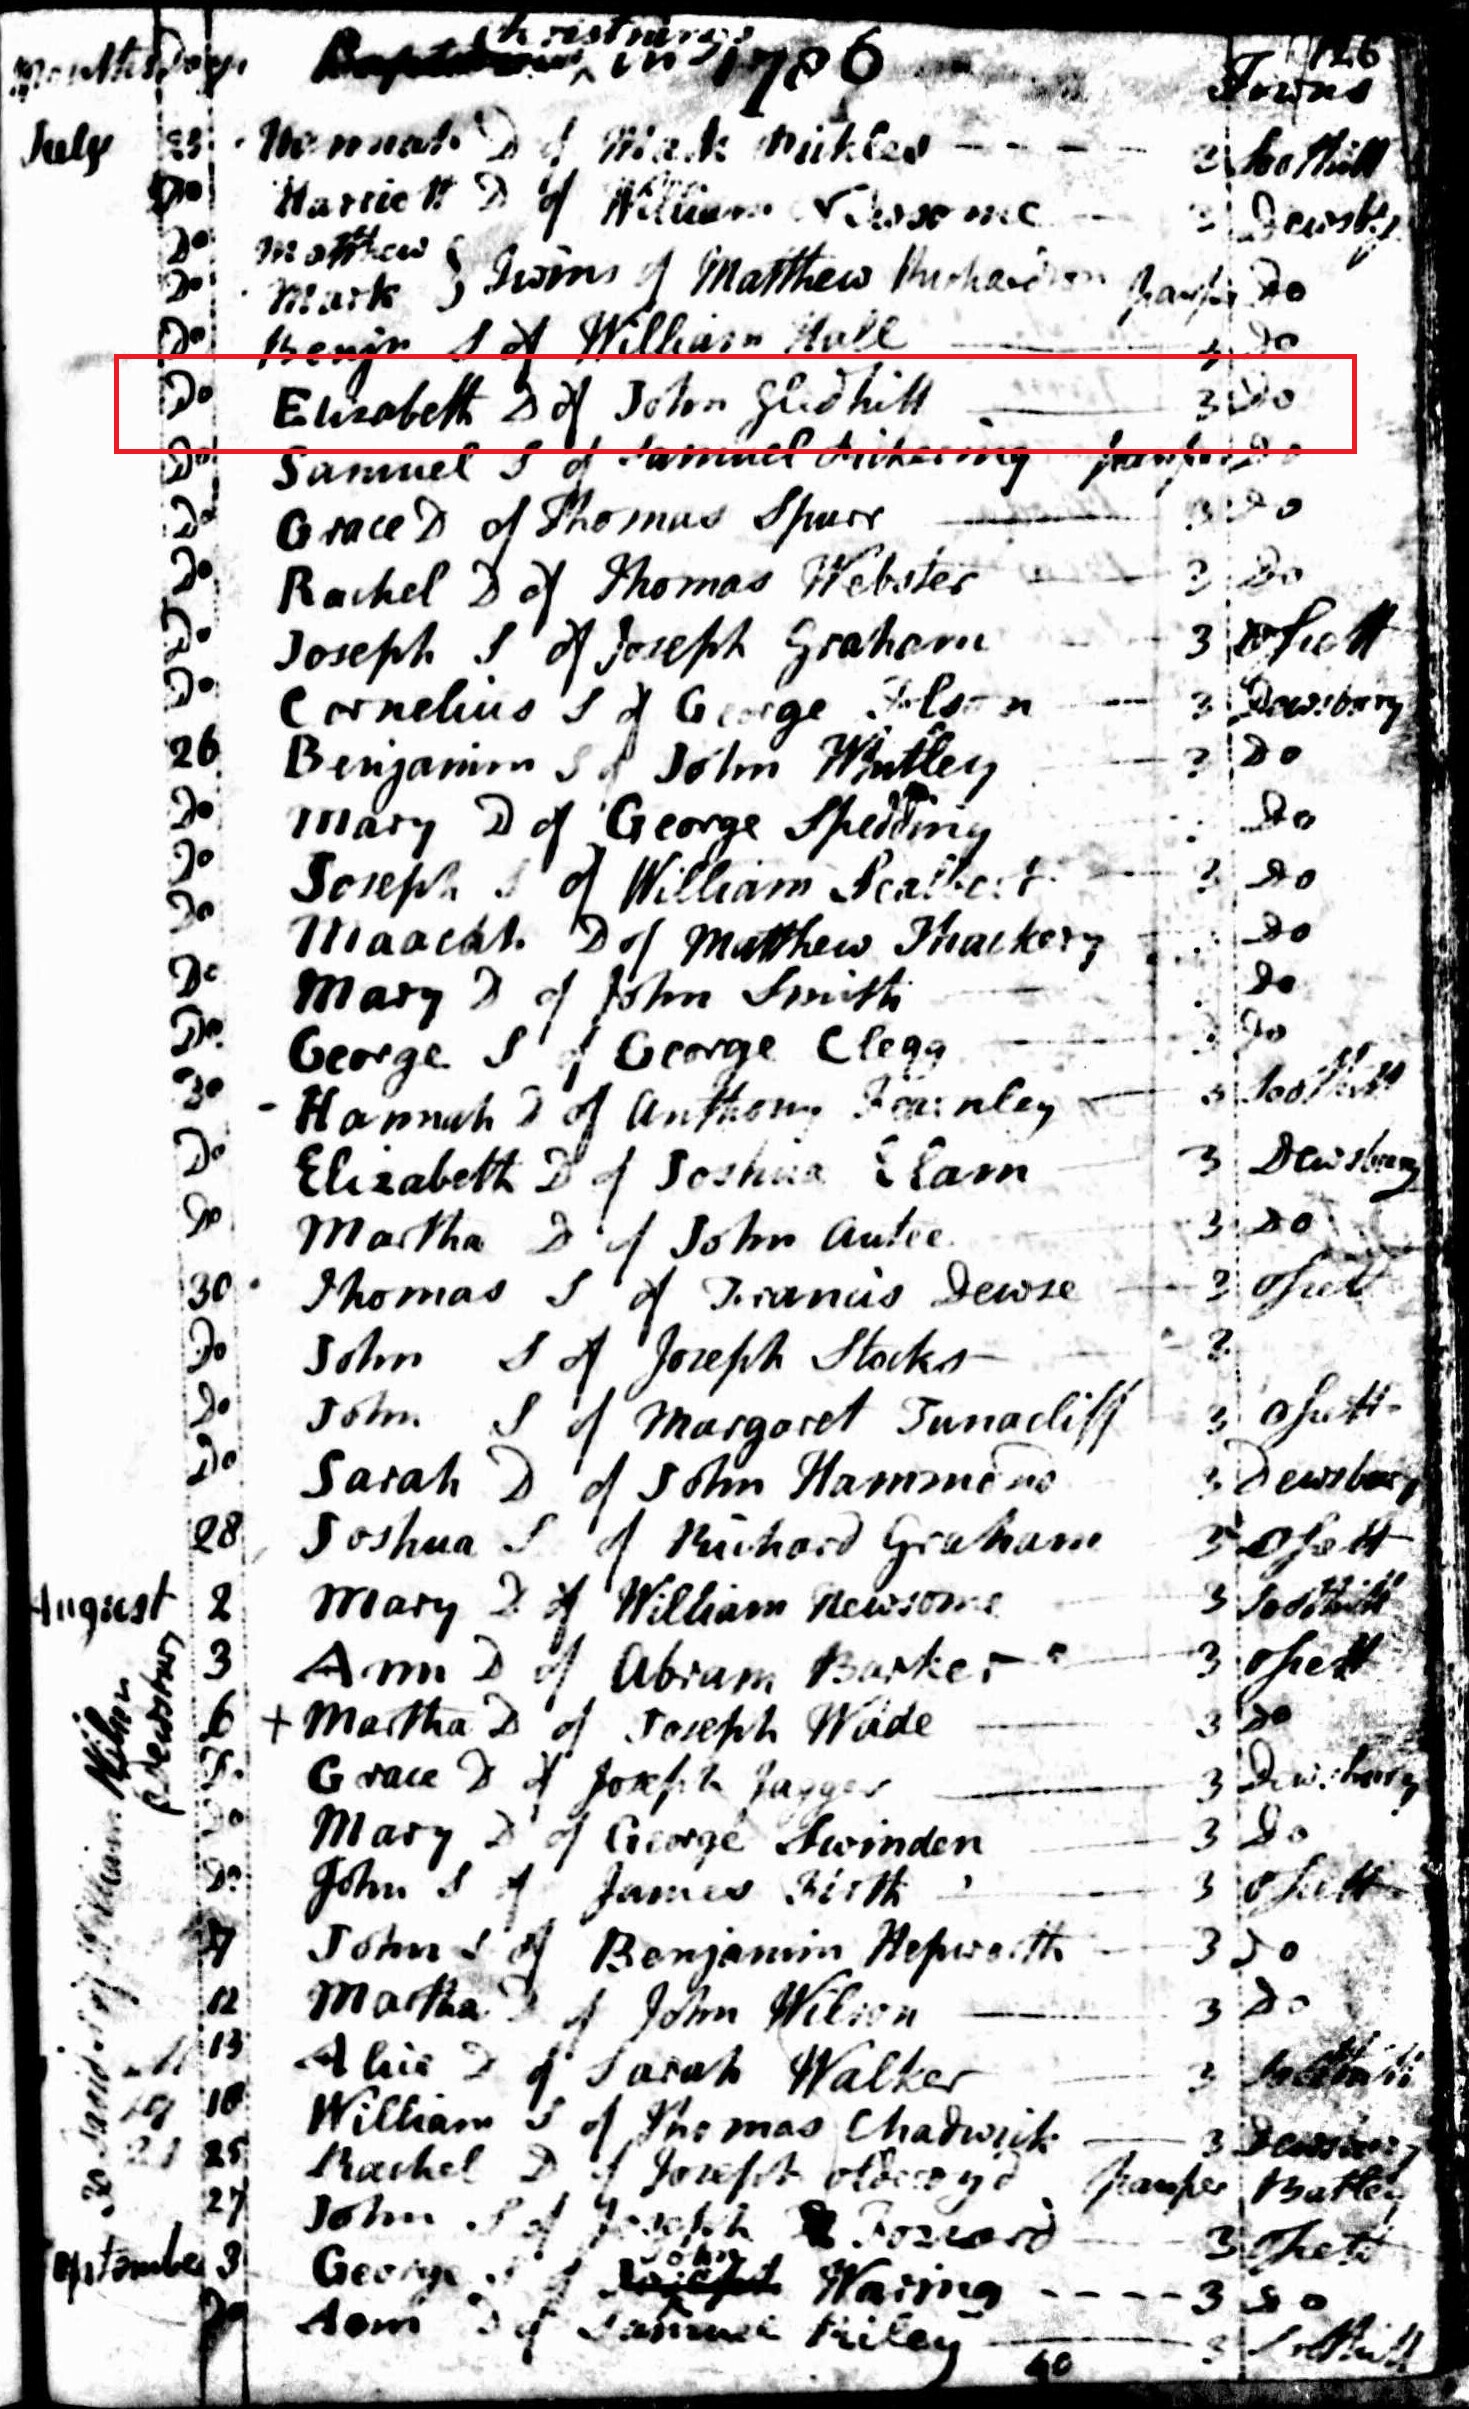 Months Days Christnings in 1786 Towns 126
July 23 Hannah D of Mark - - - - 3 Soothill
Do Harriett D of William Newsome - 3 Dewsby
Do Matthew
Do Mark } Twins of Matthew Richardson pauper Do
Do Benjn S of William Hall 3 Do
Do Elizabeth D of John Gledhill 3 Do
Do Samuel S of Samuel Pickering pauper Do
Do Grace D of Thomas Spurr 3 Do
Do Rachel D of Thomas Webster 3 Do
Do Joseph S of Joseph Graham - 3 Ossett
Do Cornelius S of George - 3 Dewsbury
26 Benjamin S of John Whitley 3 Do
Do Mary D of George Spedding Do
Do Joseph S of William - 3 Do
Do Maacah D of Matthew Thackery - Do
Do Mary D of John Smith - Do
Do George S of George Clegg Do
30 - Hannah D of Anthony Fearnley - 3 Soothill
Do Elizabeth D of Joshua Elam - 3 Dewsbury
Do Martha D of John Autee 3 Do
30 Thomas S of Francis Dewse - 3 Ossett
Do John S of Joseph Stocks - 3
Do John S of Margaret Tunacliff 3 Ossett
Do Sarah D of John Hammond 3 Dewsbury
28 Joshua S of Richard Graham 3 Ossett
August 2 Mary D of William Newsome 3 Soothill
3 Ann D of Abram Barker - 3 Ossett
6 + Martha D of Joseph Wade - 3 Do
Do Grace D of Joseph Jagger - 3 Dewsbury
Do Mary D of George Swinden - 3 Do
Do John S of James Firth - 3 Ossett
7 John S of Benjamin Hepworth - 3 Do
12 Martha D of John Wilson - 3 Do
13 Alice D of Sarah Walker 3 Soothill
18 William S of Thomas Chadwick - 3 Dewsbury
25 Rachel D of Joseph Oldroyd pauper Batley
27 John S of Joseph 3 Ossett
September 3 George S of John Waring - - - - 3 Do
Do Ann D of Samuel Riley - 3 Soothill
40
of William
Dewsbury